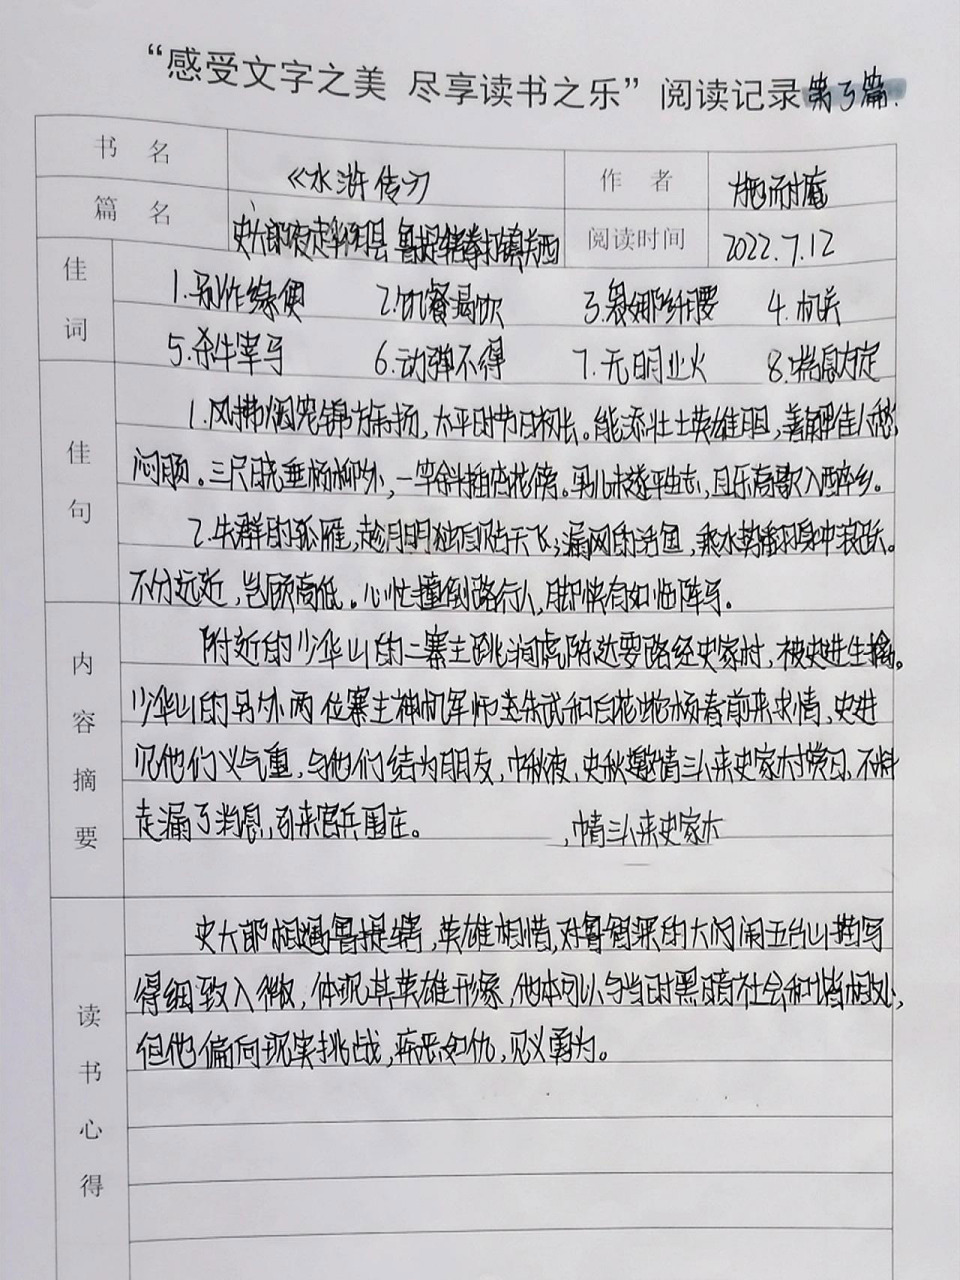 “感受文字之美 尽享读书之乐” 阅读记录 第3篇.
书 名 《水浒传》 作 者 施耐庵
篇 名 史大郎夜走华阴县 鲁提辖拳打镇关西 阅读时间 2022.7.12
佳词
1. 缘便 2. 饥餐渴饮 3. 袅娜纤腰 4. 机关
5. 杀牛宰马 6. 动弹不得 7. 无明业火 8. 喘息方定
佳句
1. 风拂烟笼锦旆扬，太平时节日初长。能添壮士英雄胆，善解佳人愁
闷肠。三尺晓垂杨柳外，一竿斜插杏花傍。男儿未遂平生志，且乐高歌入醉乡。
2. 失群的孤雁，趁月明独自贴天飞；漏网的活鱼，乘水势翻身冲浪跃。
不分远近，岂顾高低。心忙撞倒路行人，脚快有如临阵马。
内容摘要
附近的少华山的二寨主跳涧虎陈达要路经史家村，被史进生擒。
少华山的另外两位寨主神机军师朱武和白花蛇杨春前来求情，史进
见他们义气重，与他们结为朋友，中秋夜，史秋邀请三人来史家村赏月，不料
走漏了消息，引来官兵围庄。 ，情三人来史家木
读书心得
史大郎相遇鲁提辖，英雄相惜，对鲁智深的大闹五台山描写
得细致入微，体现其英雄形象，他本可以与当时黑暗社会和谐相处，
但他偏向现实挑战，疾恶如仇，见义勇为。